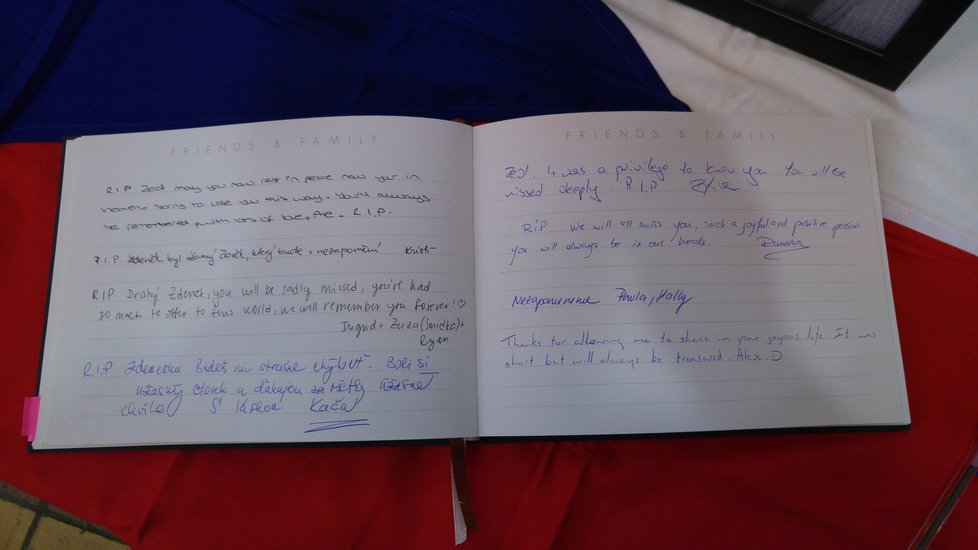 FRIENDS & FAMILY
R.I.P Zed may you now rest in peace now your in
heaven. Sorry to lose you this way. You'll always
be remembered with lots of love, R.I.P.
R.I.P. Zdeněk byl úžasný člověk, který bude v nezapomnění
R.I.P. Drahý Zdenek, you will be sadly missed, you're had
so much to offer to this world, we will remember you forever! ♡
Ingrid + Zuza (Smidka) +
Ryan
R.I.P Zdenecku. Budeš mi strašne chýbať. Bol si
úžasný človek a ďakujem za všetky úžasné
chvíle S láskou Kača
FRIENDS & FAMILY
Zed. It was a privilege to know you. You will be
missed deeply. R.I.P
RIP We will all miss you, such a joyful and positive person
you will always be in our hearts. Ramona
Nezapomeneme Pavla, Holly
Thanks for allowing me to share in your joyous life. It was
short but will always be treasured. Alex D